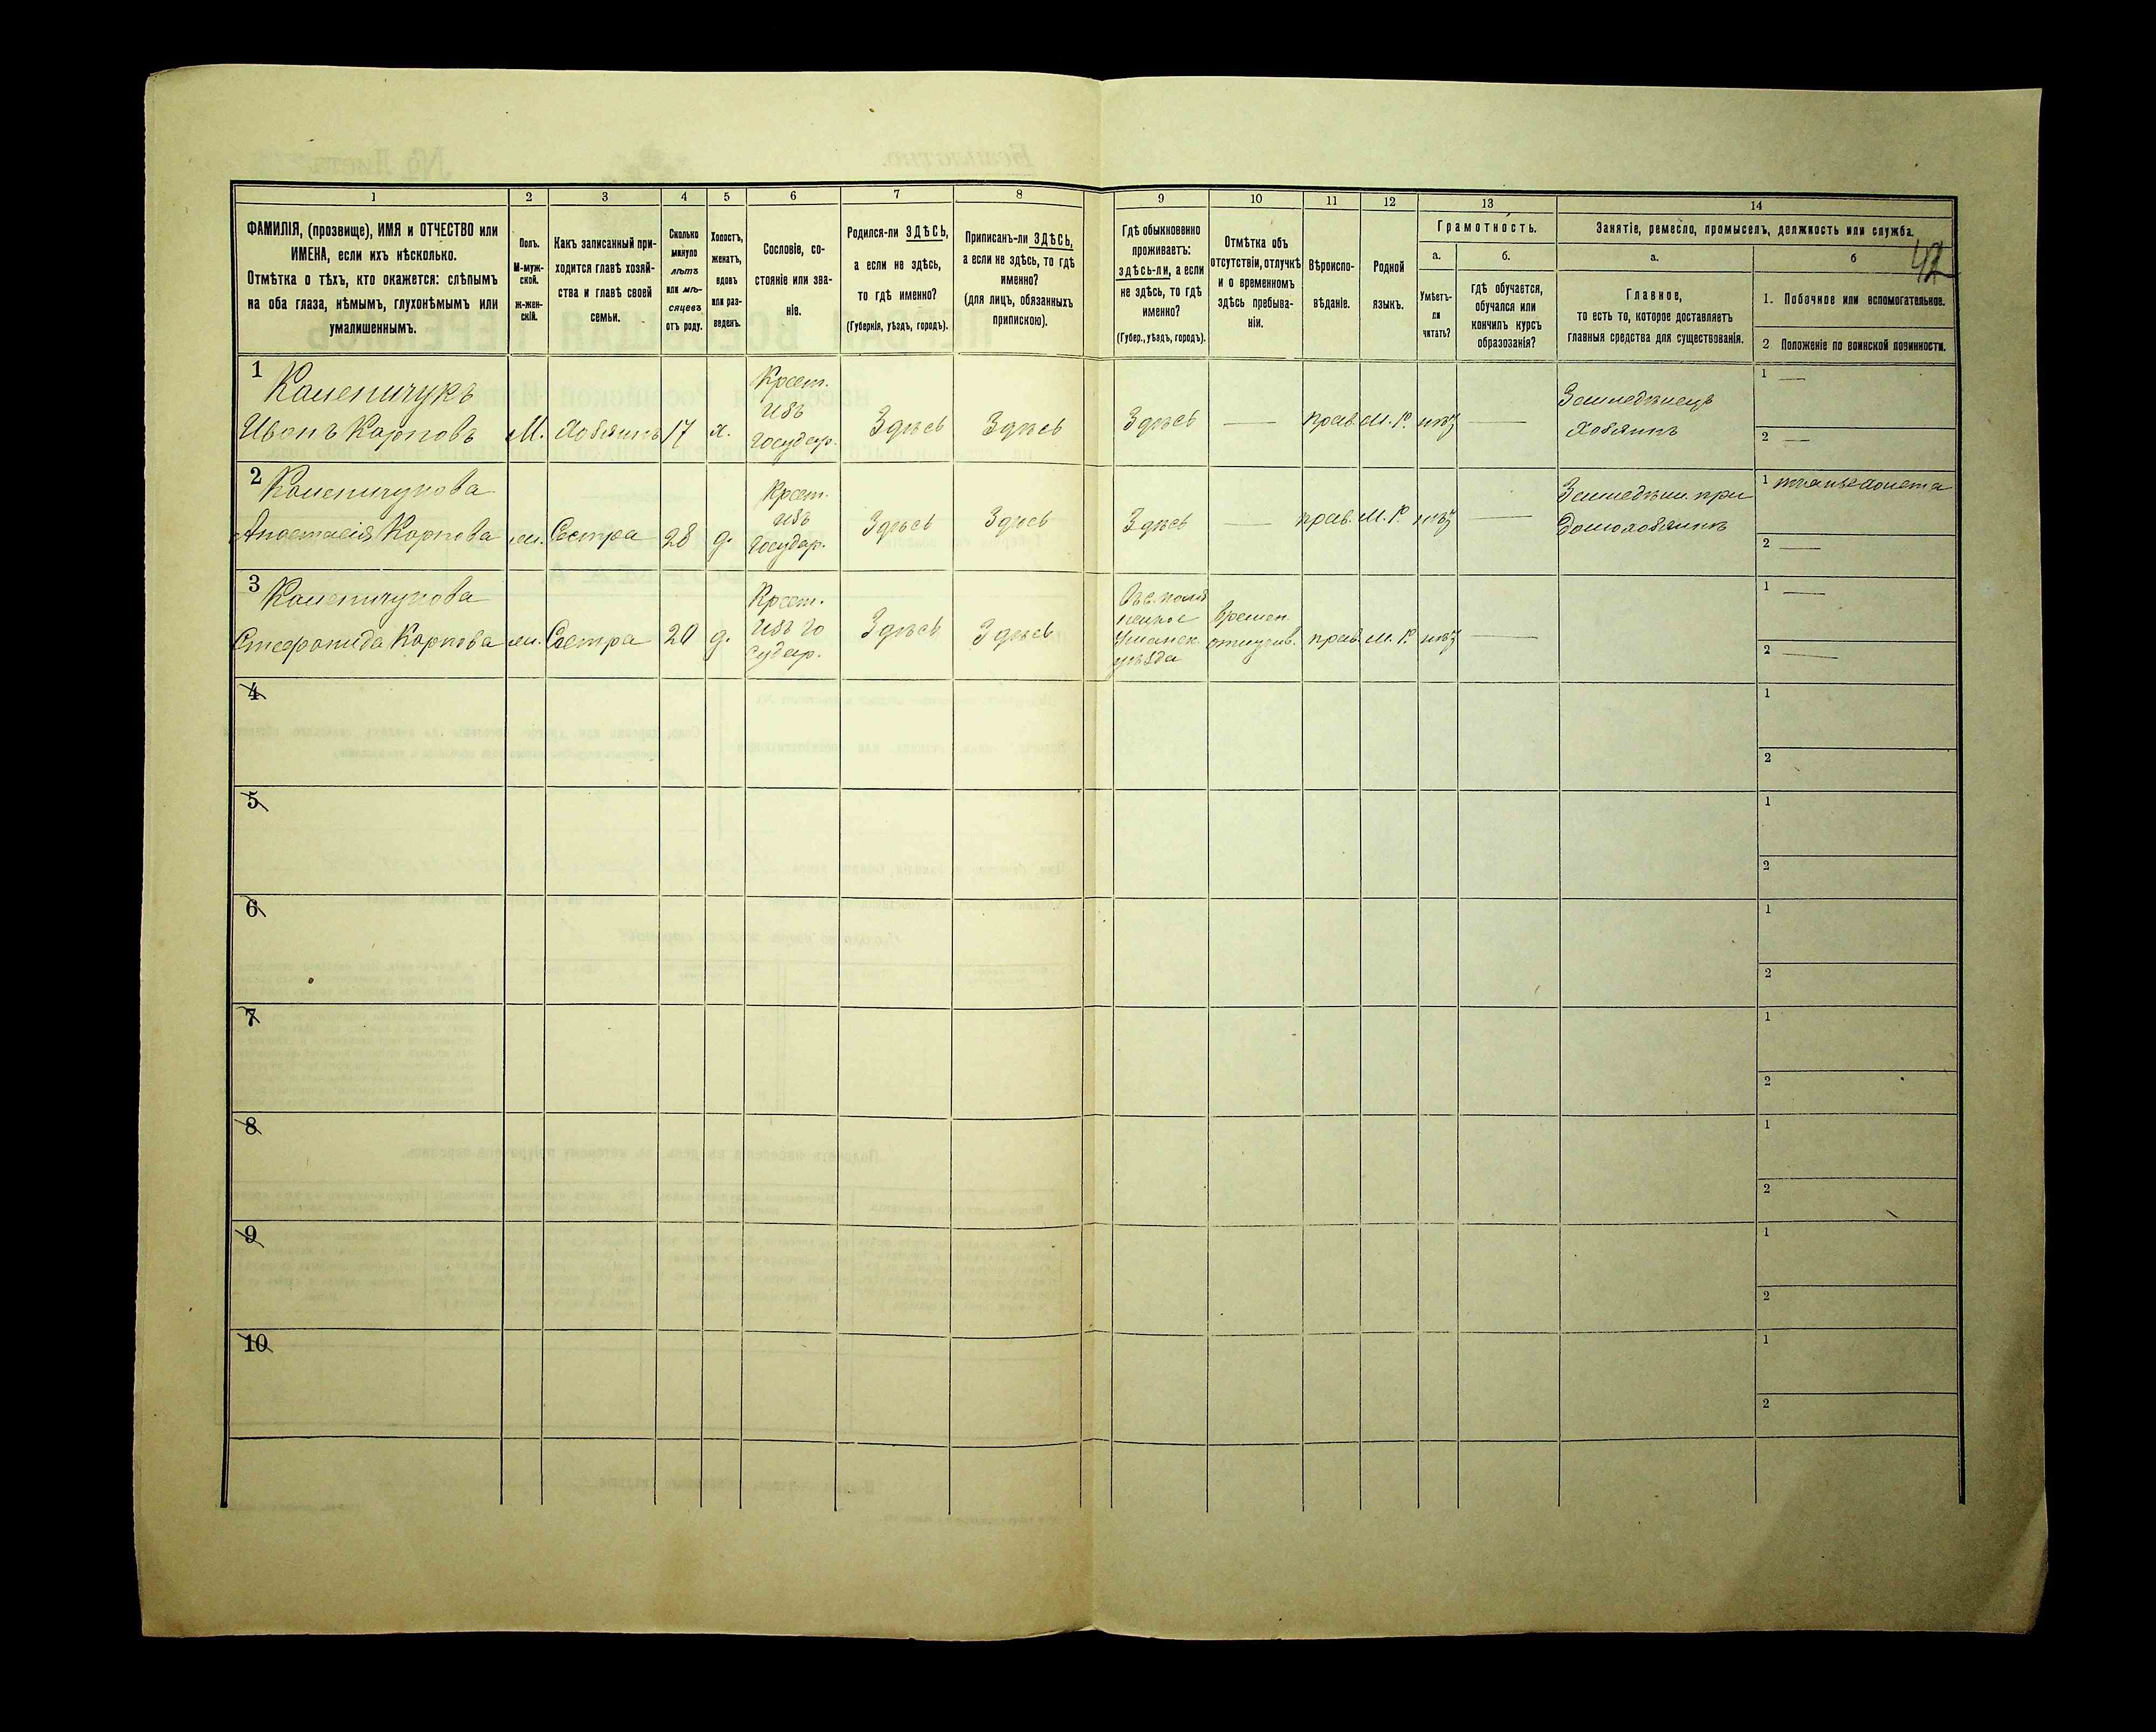 42
1 2 3 4 5 6 7 8 9 10 11 12 13 14
ФАМИЛІЯ, (прозвище), ИМЯ и ОТЧЕСТВО или
ИМЕНА, если ихъ нѣсколько.
Отмѣтка о тѣхъ, кто окажется: слѣпымъ
на оба глаза, нѣмымъ, глухонѣмымъ или
умалишеннымъ.
Полъ.
М-муж-
ской.
ж-жен-
скій.
Какъ записанный при-
ходится главѣ хозяй-
ства и главѣ своей
семьи.
Сколько
минуло
лѣтъ
или мѣ-
сяцевъ
отъ роду.
Холостъ,
женатъ,
вдовъ
или раз-
веденъ.
Сословіе, со-
стояніе или зва-
ніе.
Родился-ли ЗДѢСЬ,
а если не здѣсь,
то гдѣ именно?
(Губернія, уѣздъ, городъ).
Приписанъ-ли ЗДѢСЬ,
а если не здѣсь, то гдѣ
именно?
(для лицъ, обязанныхъ
припискою).
Гдѣ обыкновенно
проживаетъ:
здѣсь-ли, а если
не здѣсь, то гдѣ
именно?
(Губер., уѣздъ, городъ).
Отмѣтка объ
отсутствіи, отлучкѣ
и о временномъ
здѣсь пребыва-
ніи.
Вѣроиспо-
вѣданіе.
Родной
языкъ.
Грамотность.
а.
Умѣетъ-
ли
читать?
б.
гдѣ обучается,
обучался или
кончилъ курсъ
образозанія?
Занятіе, ремесло, промыселъ, должность или служба.
а.
Главное,
то есть то, которое доставляетъ
главныя средства для существованія.
б
1. Побочное или вспомогательное.
2 Положеніе по воинской повинности.
1
Каменчукъ
Иванъ Карповъ
М.
Хозяинъ
17
х.
Крест.
изъ
Государ.
Здѣсь
Здѣсь
Здѣсь
—
прав.
М. Р.
нѣтъ
—
Земледѣлецъ
Хозяинъ
1 —
2 —
2
Анастасія Карпова
Сестра
28
д.
Крест.
изъ
Государ.
Здѣсь
Здѣсь
Здѣсь
—
прав.
М. Р.
нѣтъ
—
Земледѣл. при
Домохозяинѣ
1
2 —
3
Стефанида Карпова
Сестра
20
д.
Крест.
изъ Го
судар.
Здѣсь
Здѣсь
Уманск.
уѣзда
Времен.
отлучив.
прав.
М. Р.
нѣтъ
—
1 —
2 —
4
1
2
5
1
2
6
1
2
7
1
2
8
1
2
9
1
2
10
1
2